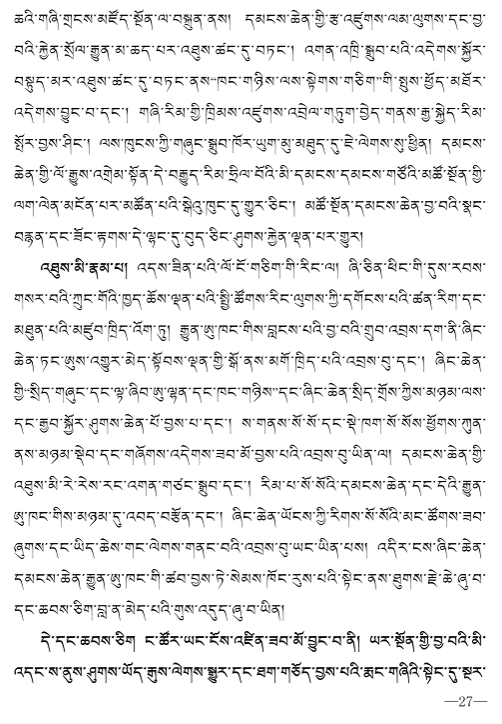 ཆའི་གཞི་གྲངས་མཛོད་སྔོན་ལ་བསྒྲུན་ནས། དམངས་ཆེན་གྱི་རྩ་འཛུགས་ལམ་ལུགས་དང་བྱ་
བའི་རྐྱེན་སྲོལ་རྒྱུན་མ་ཆད་པར་འཐུས་ཚང་དུ་བཏང་། འགན་འཁྲི་སྒྲུབ་པའི་འདེགས་སྐྱོར་
བསྟུད་མར་འཐུས་ཚང་དུ་བཏང་ནས“ཁང་གཉིས་ལས་སྟེགས་གཅིག”གི་སྤུས་ཕྱོད་མཐོར་
འདེགས་བྱུང་བ་དང་། གཞི་རིམ་གྱི་ཁྲིམས་འཛུགས་འབྲེལ་གཏུག་བྱེད་གནས་རྒྱ་སྐྱེད་རིམ་
སྤོར་བྱས་ཤིང་། ལས་ཁུངས་ཀྱི་གཞུང་སྒྲུབ་ཁོར་ཡུག་མུ་མཐུད་དུ་ཇེ་ལེགས་སུ་ཕྱིན། དམངས་
ཆེན་གྱི་ལོ་རྒྱུས་འགྲེམ་སྟོན་དེ་བརྒྱུད་རིམ་ཧྲིལ་བོའི་མི་དམངས་དམངས་གཙོའི་མཚོ་སྔོན་གྱི་
ལག་ལེན་མངོན་པར་མཚོན་པའི་སྒེའུ་ཁུང་དུ་གྱུར་ཅིང་། མཚོ་སྔོན་དམངས་ཆེན་བྱ་བའི་སྣང་
བརྙན་དང་ཟོང་རྟགས་དེ་ལྷང་དུ་བུད་ཅིང་ཤུགས་རྐྱེན་ལྡན་པར་གྱུར།
འཐུས་མི་རྣམ་པ། འདས་ཟིན་པའི་ལོ་ངོ་གཅིག་གི་རིང་ལ། ཞི་ཅིན་ཕིང་གི་དུས་རབས་
གསར་བའི་ཀྲུང་གོའི་ཁྱད་ཆོས་ལྡན་པའི་སྤྱི་ཚོགས་རིང་ལུགས་ཀྱི་དགོངས་པའི་ཚན་རིག་དང་
མཐུན་པའི་མཛུབ་ཁྲིད་འོག་ཏུ། རྒྱུན་ཨུ་ཁང་གིས་བླངས་པའི་བྱ་བའི་གྲུབ་འབྲས་དག་ནི་ཞིང་
ཆེན་ཏང་ཨུས་འགྱུར་མེད་སྟོབས་ལྡན་གྱི་སྒོ་ནས་མགོ་ཁྲིད་པའི་འབྲས་བུ་དང་། ཞིང་ཆེན་
གྱི“སྲིད་གཞུང་དང་ལྟ་ཞིབ་ཨུ་ལྷན་དང་ཁང་གཉིས”དང་ཞིང་ཆེན་སྲིད་གྲོས་ཀྱིས་མཉམ་ལས་
དང་རྒྱབ་སྐྱོར་ཤུགས་ཆེན་པོ་བྱས་པ་དང་། ས་གནས་སོ་སོ་དང་སྡེ་ཁག་སོ་སོས་ཕྱོགས་ཀུན་
ནས་མཉམ་སྡེབ་དང་གཞོགས་འདེགས་ཟབ་མོ་བྱས་པའི་འབྲས་བུ་ཡིན་ལ། དམངས་ཆེན་གྱི་
འཐུས་མི་རེ་རེས་རང་འགན་གཙང་སྒྲུབ་དང་། རིམ་པ་སོ་སོའི་དམངས་ཆེན་དང་དེའི་རྒྱུན་
ཨུ་ཁང་གིས་མཉམ་དུ་འབད་བརྩོན་དང་། ཞིང་ཆེན་ཡོངས་ཀྱི་རིགས་སོ་སོའི་མང་ཚོགས་ཟབ་
ཞུགས་དང་ཡིད་ཆེས་གང་ལེགས་གནང་བའི་འབྲས་བུ་ཡང་ཡིན་པས། འདིར་ངས་ཞིང་ཆེན་
དམངས་ཆེན་རྒྱུན་ཨུ་ཁང་གི་ཚབ་བྱས་ཏེ་སེམས་ཁོང་རུས་པའི་སྟེང་ནས་ཐུགས་རྗེ་ཆེ་ཞུ་བ་
དང་ཆབས་ཅིག་བླ་ན་མེད་པའི་གུས་འདུད་ཞུ་བ་ཡིན།
དེ་དང་ཆབས་ཅིག ང་ཚོར་ཡང་ངོས་འཛིན་ཟབ་མོ་བྱུང་བ་ནི། ཡར་སྔོན་གྱི་བྱ་བའི་མི་
འདང་ས་ནུས་ཤུགས་ཡོད་རྒུས་ལེགས་སྒྱུར་དང་ཐག་གཅོད་བྱས་པའི་རྨང་གཞིའི་སྟེང་དུ་སྔར་
—27—